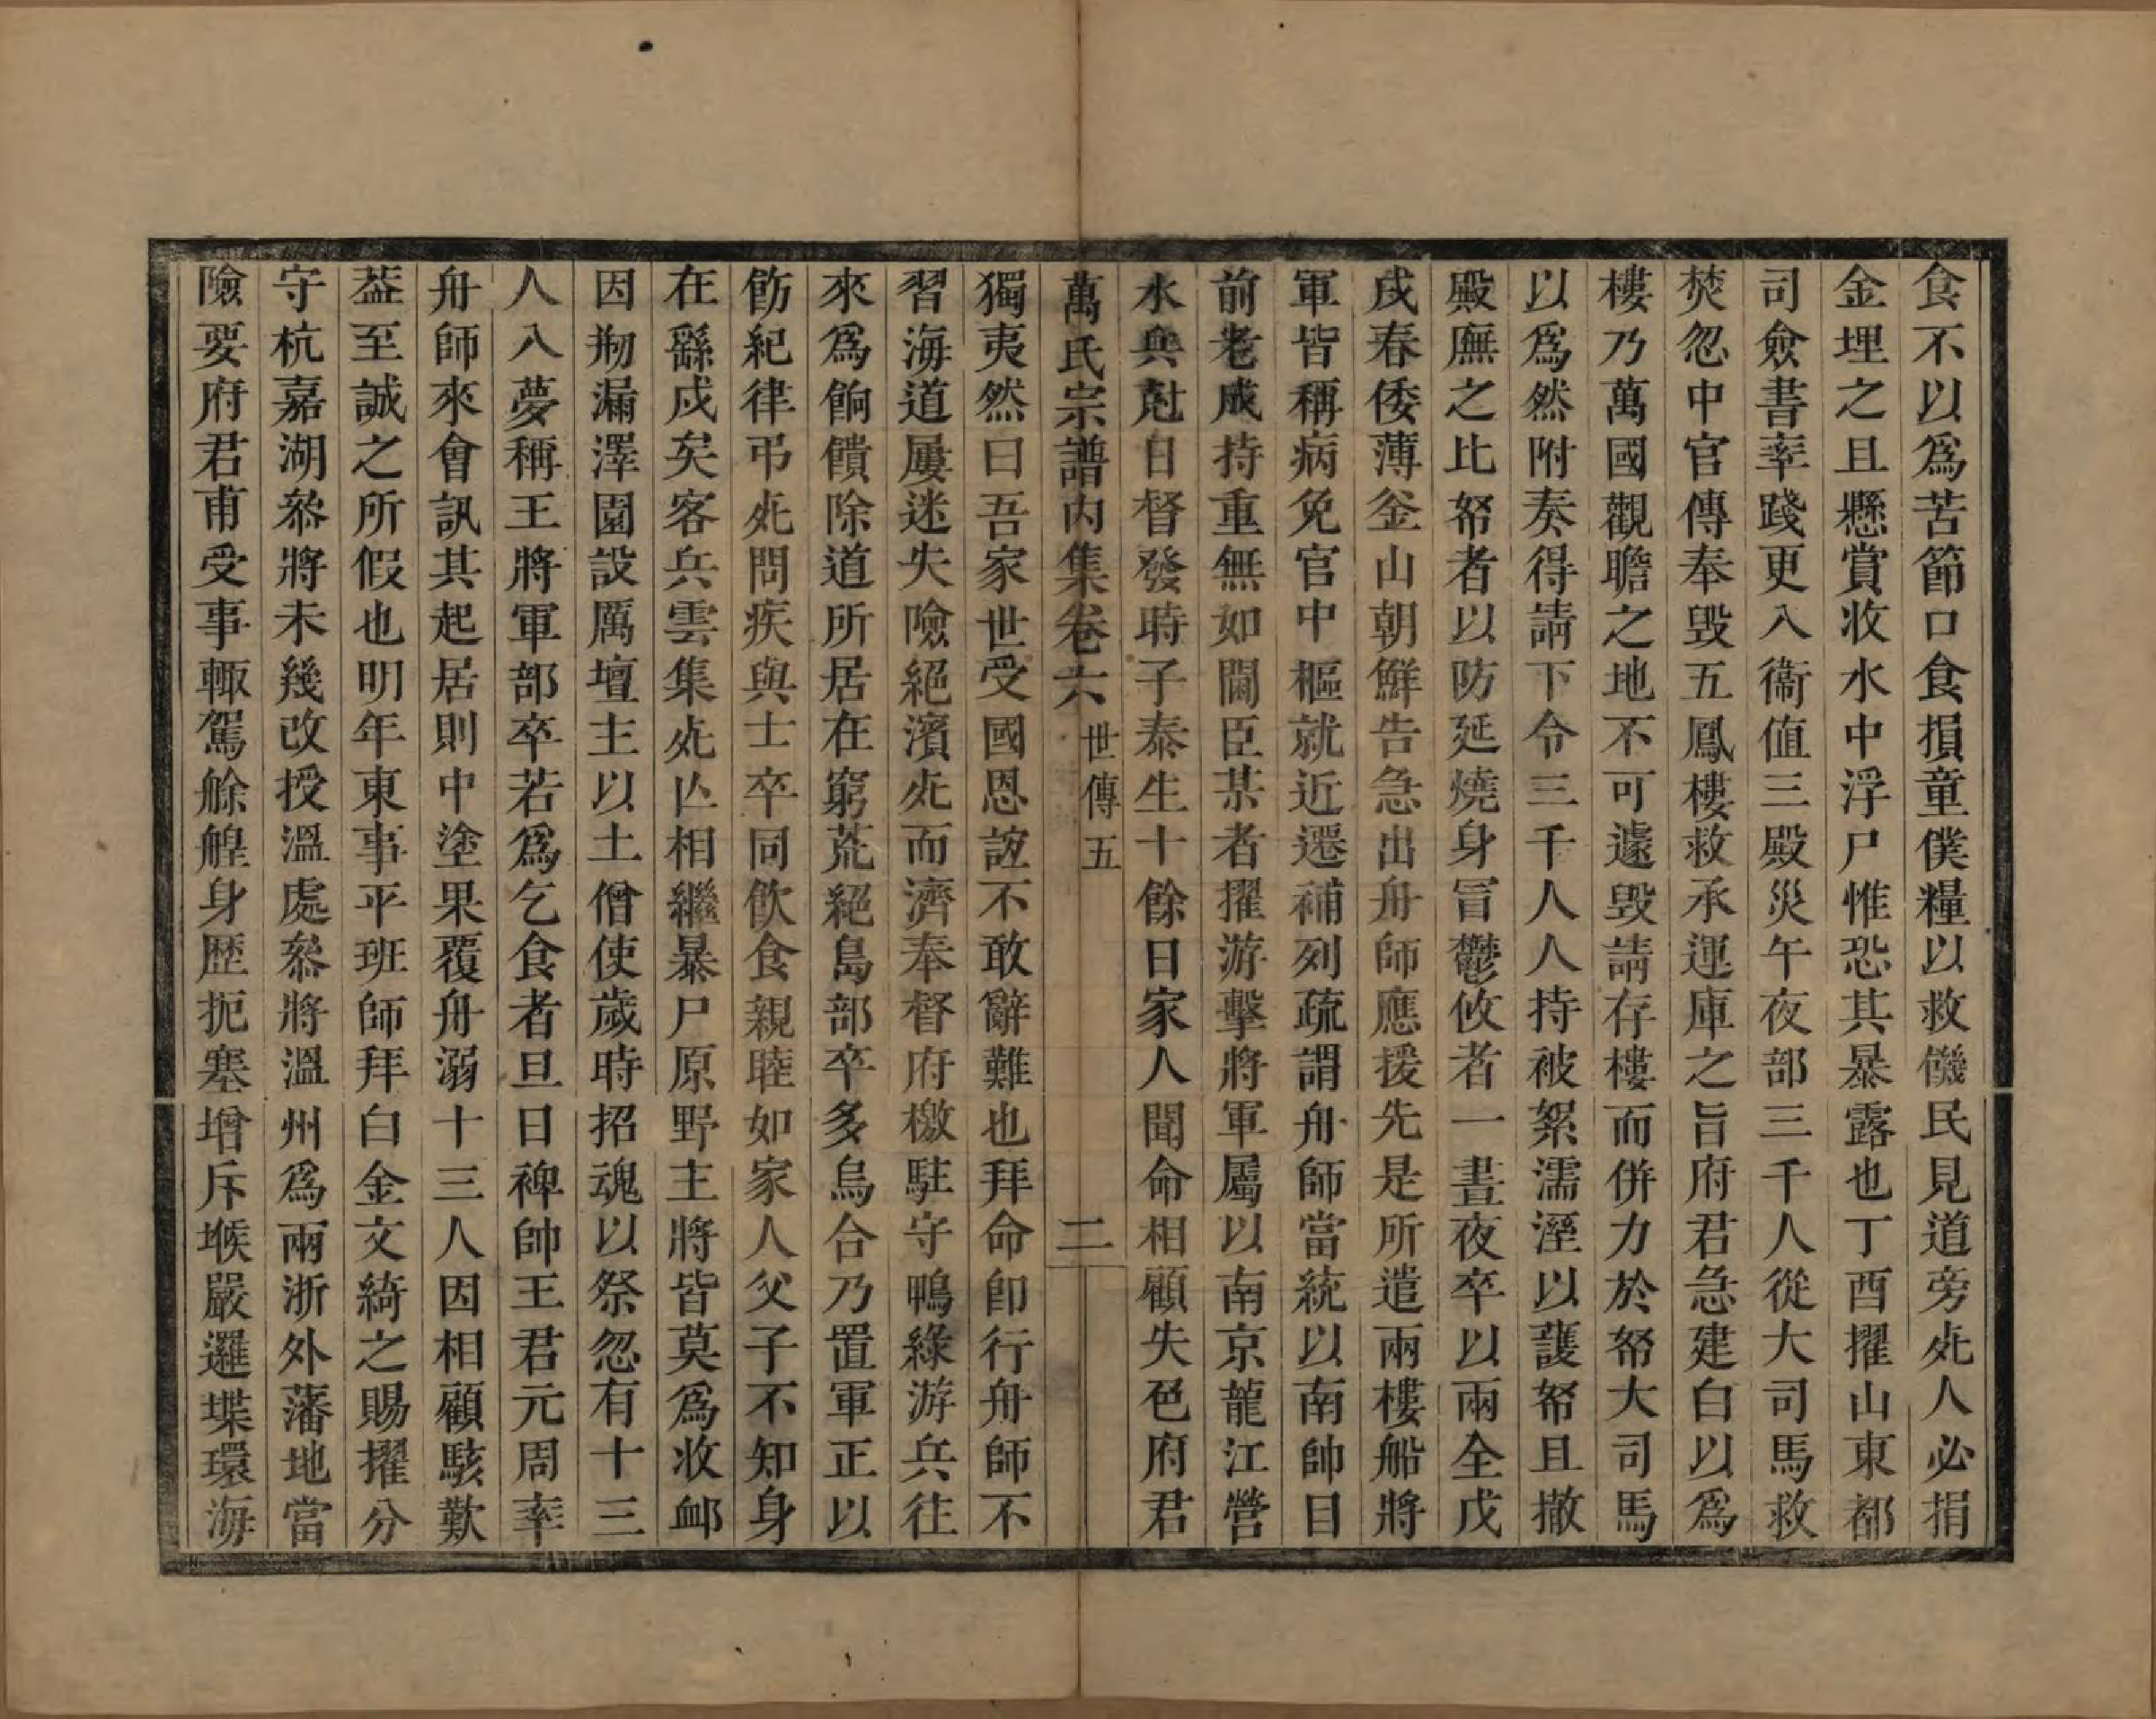 食不以爲苦節口食損童僕糧以救饑民見道旁死人必捐
金埋之且懸賞收水中浮尸惟恐其暴露也丁酉擢山東都
司僉書率踐更入衞值三殿災午夜部三千人從大司馬救
焚忽中官傳奉毀五鳳樓救承運庫之旨府君急建白以爲
樓乃萬國觀瞻之地不可遽毀請存樓而併力於帑大司馬
以爲然附奏得請下令三千人人持被絮濡溼以護帑且撤
殿廡之比帑者以防延燒身冒鬱攸者一晝夜卒以兩全戊
戌春倭薄釜山朝鮮告急出舟師應援先是所遣兩樓船將
軍皆稱病免官中樞就近遷補列疏謂舟師當統以南帥目
前老成持重無如閫臣某者擢游擊將軍屬以南京龍江營
水兵尅日督發時子泰生十餘日家人聞命相顧失色府君
萬氏宗譜內集卷六 世傳五 二
獨夷然曰吾家世受國恩誼不敢辭難也拜命卽行舟師不
習海道屢迷失險絕濱死而濟奉督府檄駐守鴨綠游兵往
來爲餉饋除道所居在窮荒絕島部卒多烏合乃置軍正以
飭紀律弔死問疾與士卒同飲食親睦如家人父子不知身
在繇戍矣客兵雲集死亾相繼暴尸原野主將皆莫爲收卹
因剏漏澤園設厲壇主以土僧使歲時招魂以祭忽有十三
人入夢稱王將軍部卒若爲乞食者旦日裨帥王君元周率
舟師來會訊其起居則中塗果覆舟溺十三人因相顧駭歎
葢至誠之所假也明年東事平班師拜白金文綺之賜擢分
守杭嘉湖叅將未幾改授溫處叅將溫州爲兩浙外藩地當
險要府君甫受事輒駕艅艎身歷扼塞增斥堠嚴邏堞環海